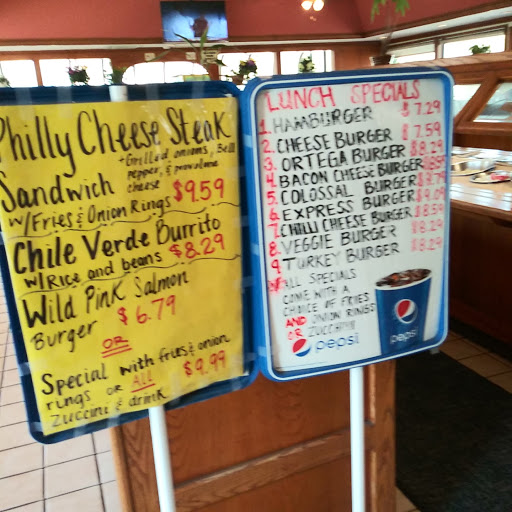 Philly Cheese Steak
+Grilled onions, Bell
pepper, & provolone
cheese
Sandwich
$9.59
w/Fries & Onion Rings
Chile Verde Burrito
w/Rice and beans $8.29
Wild Pink Salmon
Burger $6.79
OR
Special with fries & onion
rings or ALL $9.99
Zuccini & drink
LUNCH SPECIALS
1. HAMBURGER $7.29
2. CHEESE BURGER $7.59
3. ORTEGA BURGER $8.29
4. BACON CHEESE BURGER
5. COLOSSAL BURGER $9.79
6. EXPRESS BURGER $9.09
7. CHILLI CHEESE BURGER $8.59
8. VEGGIE BURGER $8.29
9. TURKEY BURGER $8.29
ALL SPECIALS
COME WITH A
CHOICE OF FRIES
AND ONION RINGS
OR ZUCCHINI
pepsi
pepsi